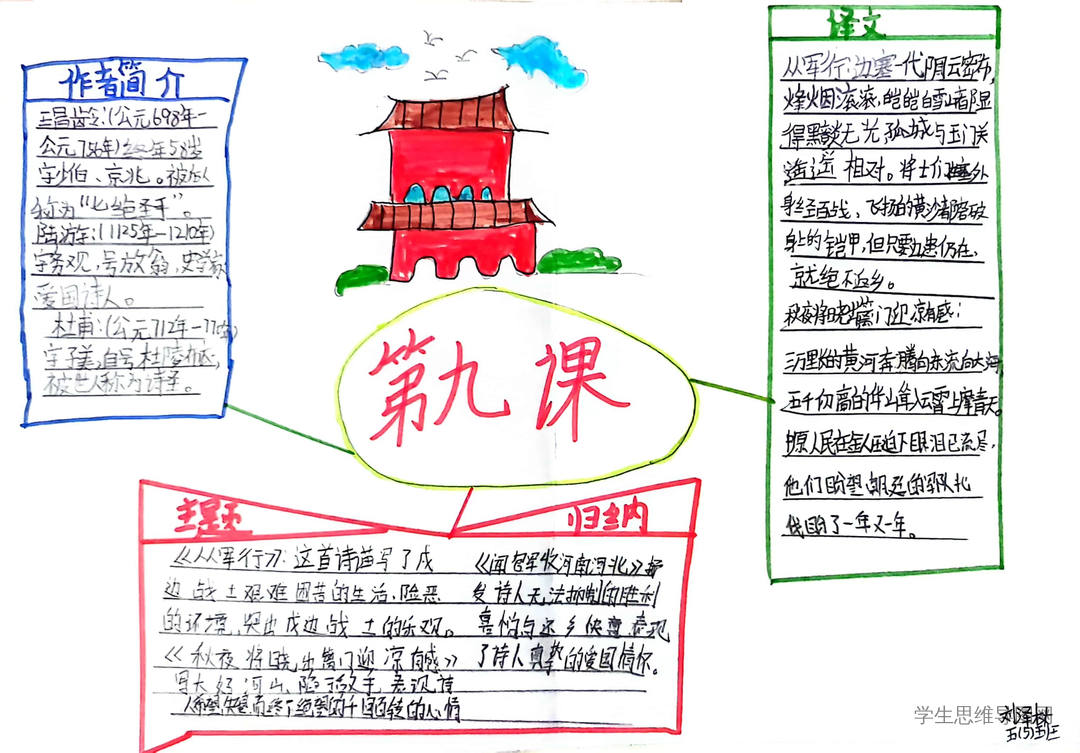 作者简介
王昌龄:(公元698年一
公元756年)终年58岁
字少伯、京兆。被后人
称为“七绝圣手”。
陆游:(1125年一1210年)
字务观,号放翁,史学家
爱国诗人。
杜甫:(公元712年一770年)
字子美,自号杜陵布衣,
被世人称为诗圣。
第九课
译文
从军行:边塞一代阴云密布,
烽火烟滚滚,皑皑白雪都显
得黑黢无光,孤城与玉门关
遥遥相对。将士们塞外
身经百战,飞扬的黄沙都磨破
身上的铠甲,但只要边患仍在,
就绝不返乡。
秋夜将晓出篱门迎凉有感:
三万里长的黄河奔腾向东流向大海
五千仞高的华山耸入云霄上摩青天。
中原人民在金人压迫下眼泪已流尽,
他们盼望朝廷的军队北
伐盼了一年又一年。
主题
归纳
《从军行》:这首诗描写了戍
边战士艰难困苦的生活,险恶
的环境,突出戍边战士的乐观。
《秋夜将晓出篱门迎凉有感》
写大好河山,陷于敌手,表现诗
人希望失望而终于绝望的千回百转的心情
《闻官军收河南河北》抒
发诗人无法抑制的胜利
喜悦与还乡快意,表现
了诗人真挚的爱国情怀。
学生思维导
刘泽
五(5)班